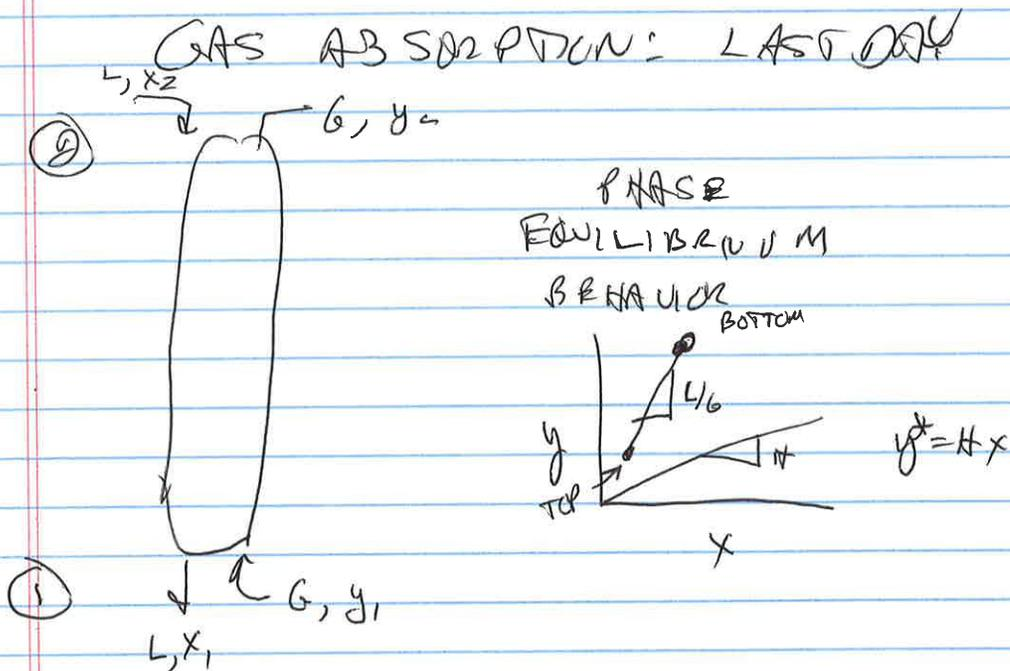 GAS ABSORPTION: LAST DAY
L, x2
G, y2
2
PHASE
EQUILIBRIUM
BEHAVIOR
BOTTOM
L/G
y
H
y* = Hx
TOP
x
1
G, y1
L, x1